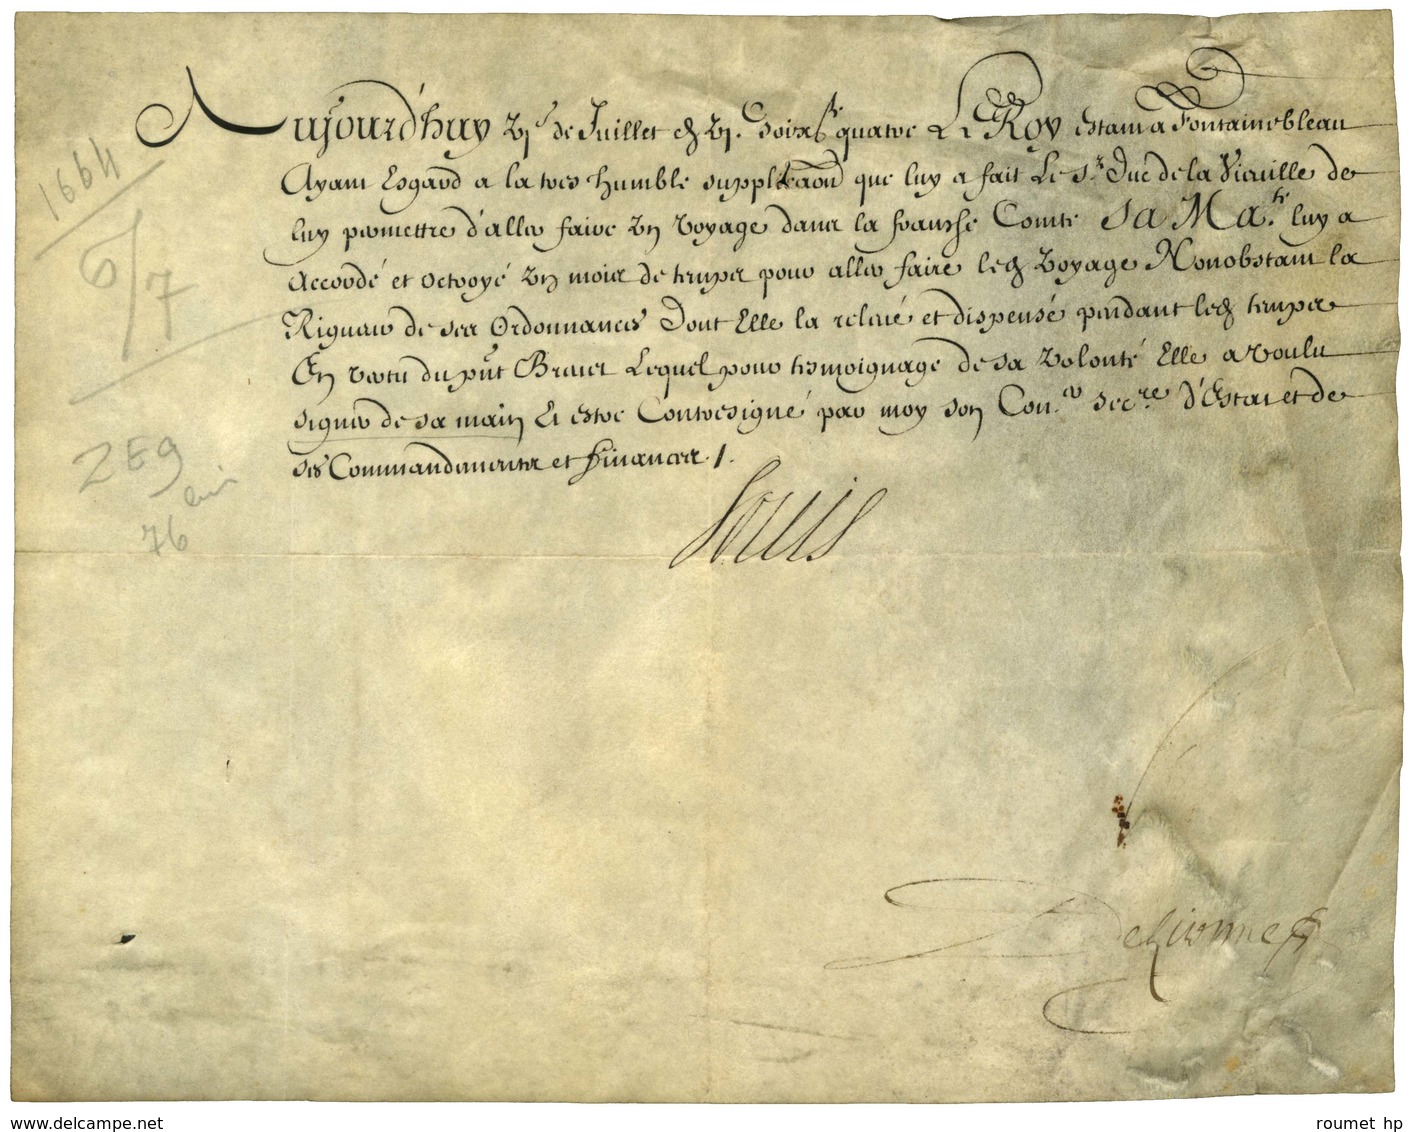 Aujourd'huy vje de Juillet gbj.C soixte quatre Le Roy estant a Fontainebleau
Ayant Esgard a la tres humble supplicaon que luy a fait Le Sr. Duc de la Vieuille de
luy permettre d'aller faire vn voyage dans la franche Comté Sa Mate. luy a
Accordé et octroyé vn mois de temps pour aller faire led voyage Nonobstant la
Rigueur de ses Ordonnances Dont Elle la releué et dispensé pendant led temps
En vertu du pnt Breuet Lequel pour tesmoignage de sa volonté Elle a voulu
signer de sa main Et estre Contresigné par moy son Conser. Secre. d'Estat et de
ses Commandements et finances ./.
Louis
DeLionne
1664
6/7
2E9
76
www.delcampe.net
roumet hp